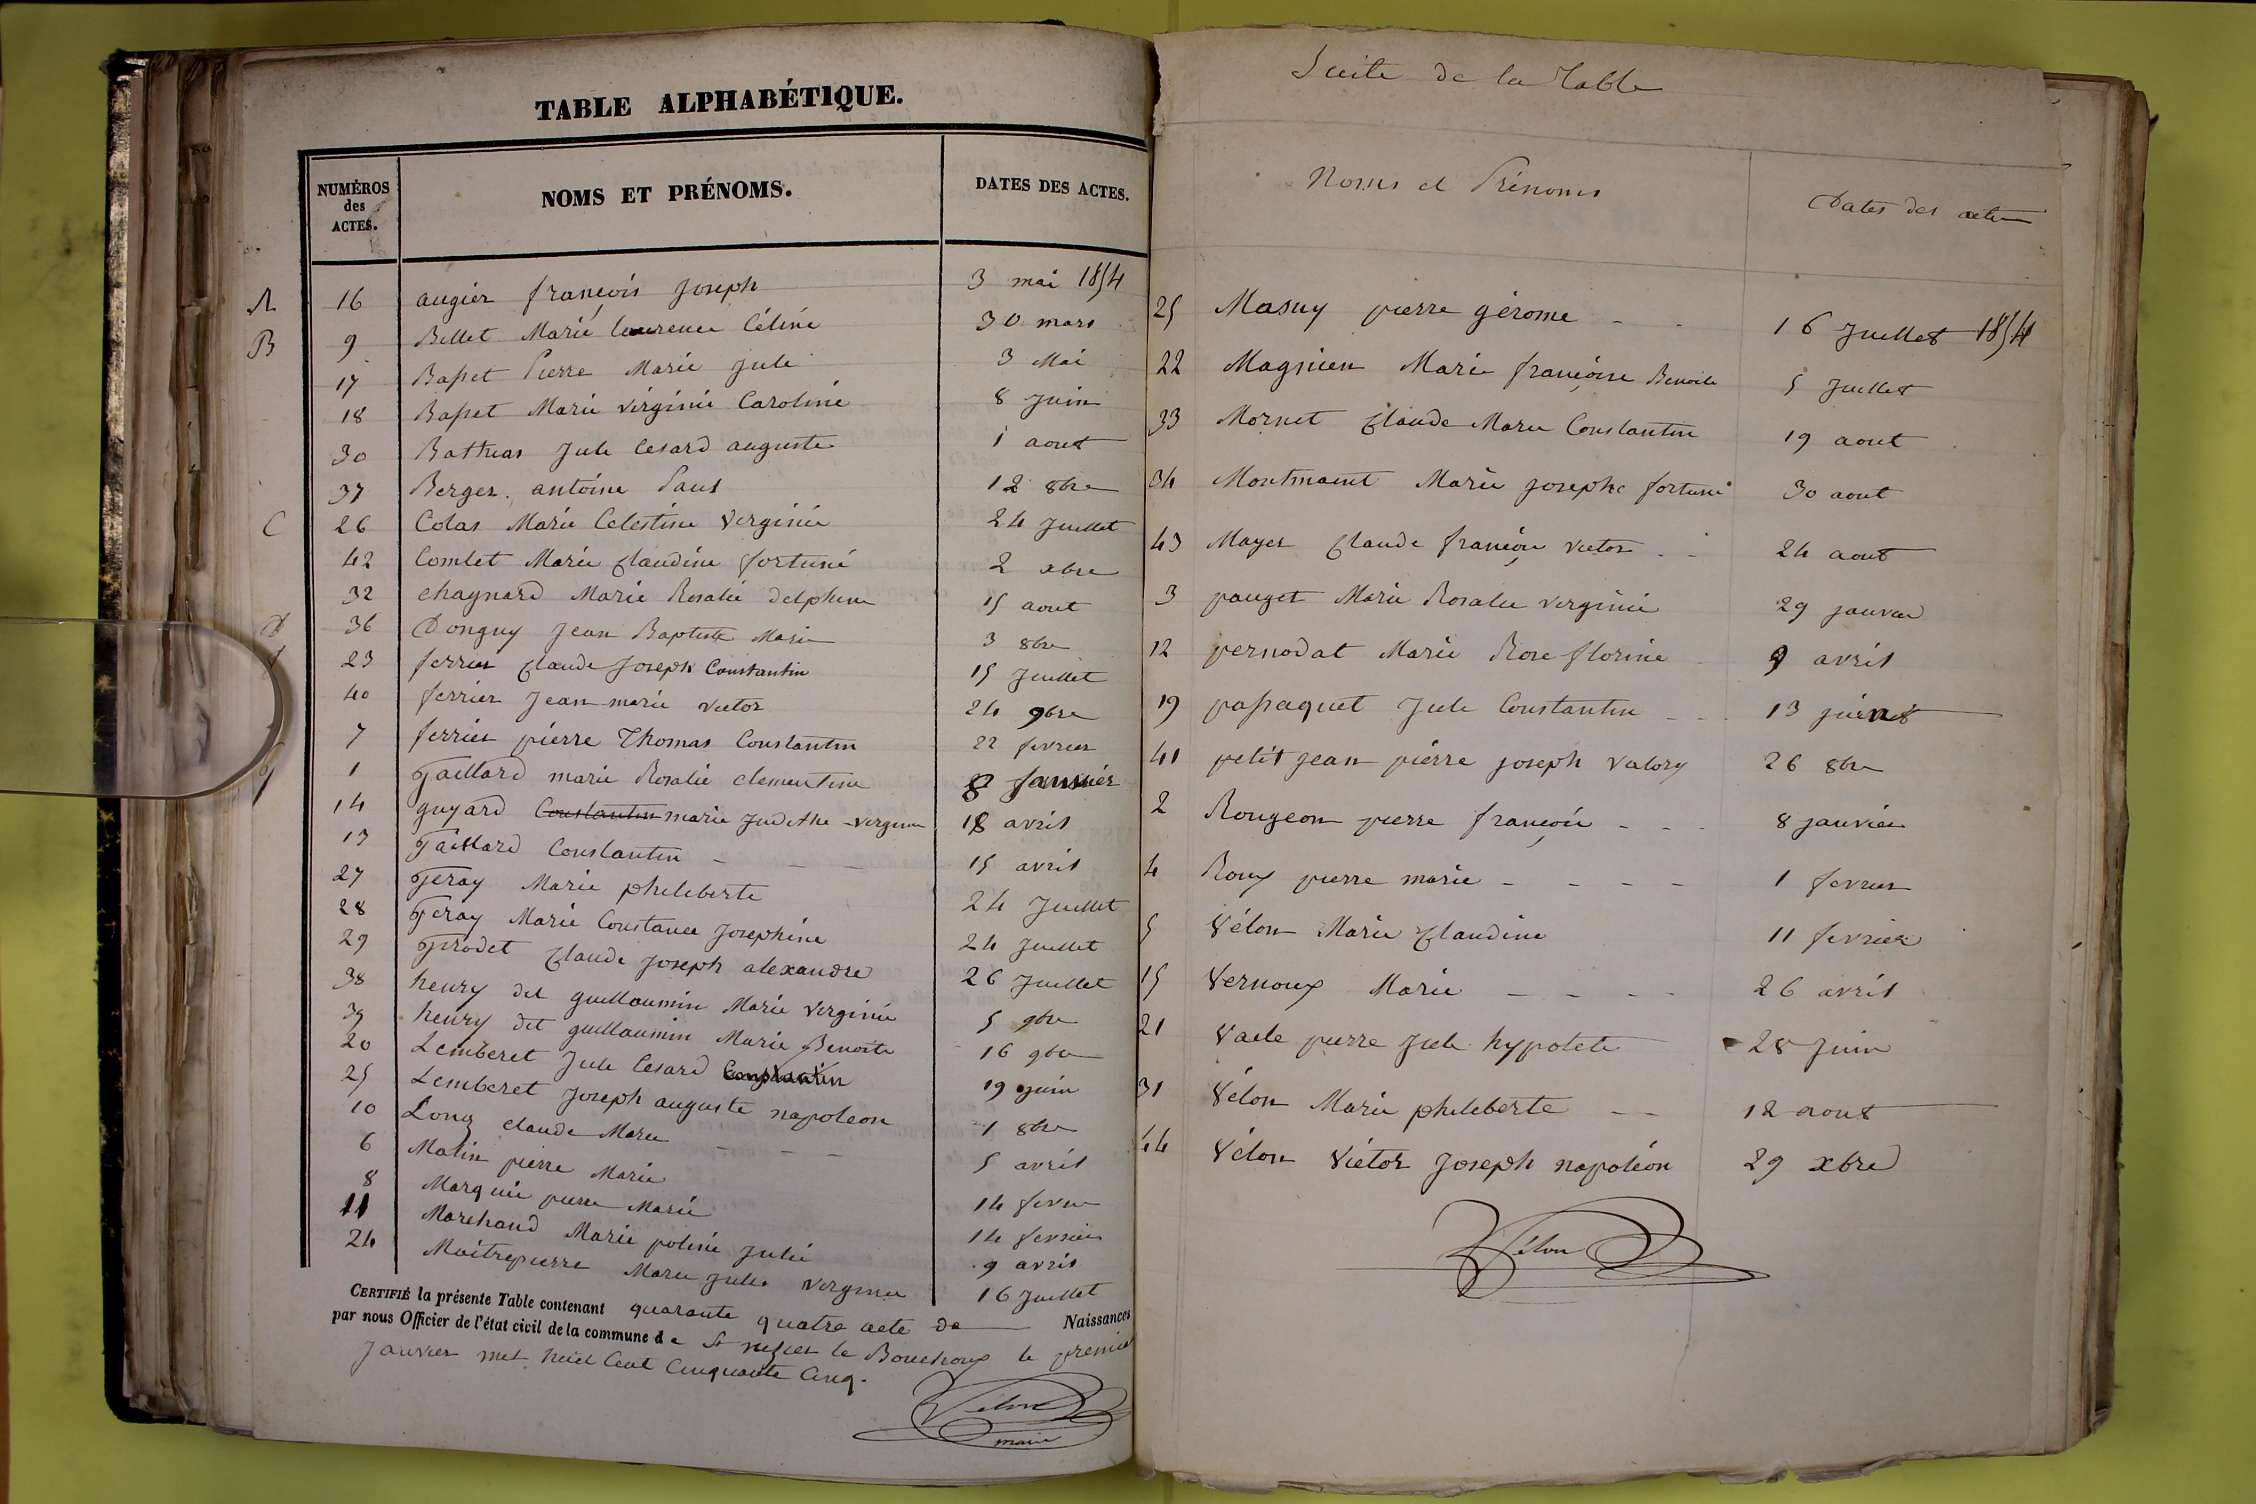 TABLE ALPHABÉTIQUE.
NUMÉROS des ACTES. NOMS ET PRÉNOMS. DATES DES ACTES.
A 16 augier françois Joseph 3 mai 1854
B 9 Billet Marie laurence Céline 30 mars
17 Basset Pierre Marie Jule 3 Mai
18 Basset Marie Virginie Caroline 8 Juin
30 Bathias Jule Cesard auguste 1 aout
37 Berger antoine Paul 12 8bre
C 26 Colas Marie Celestine Virginie 24 Juillet
42 Comlet Marie Claudine fortuné 2 xbre
32 chagnard Marie Rosalie delphine 15 aout
D 36 Donguy Jean Baptiste Marie 3 8bre
f 23 ferrier Claude Joseph Constantin 15 Juillet
40 ferrier Jean marie victor 24 9bre
7 ferrier pierre Thomas Constantin 22 fevrier
G 1 Gaillard marie Rosalie clementine 8 Janvier
14 guyard Constantin marie Judithe virginie 18 avril
13 Gaillard Constantin 15 avril
27 Geray Marie pheleberte 24 Juillet
28 Geray Marie Constance Josephine 24 Juillet
29 Girodet Claude Joseph alexandre 26 Juillet
38 henry dit guillaumin Marie Virginie 5 9bre
39 henry dit guillaumin Marie Benoite 16 9bre
20 Lemberet Jule Cesard Constantin 19 juin
25 Lemberet Joseph auguste napoleon 1 8bre
10 Long claude Marie 5 avril
6 Matin pierre Marie 14 fevrier
8 Marquis pierre Marie 14 fevrier
11 Marchand Marie poline Julie 9 avril
24 Maitrepierre Marie Julie Virginie 16 Juillet
CERTIFIÉ la présente Table contenant quarante quatre acte de Naissances
par nous Officier de l'état civil de la commune de St nizier le Bouchoux le premier
Janvier mil huit Cent Cinquante Cinq.
Vélon
maire
Suite de la Table
Noms et Prénoms Dates des actes
25 Masuy pierre gérome 16 Juillet 1854
22 Magnien Marie françoise Benoite 5 Juillet
33 Mornet Claude Marie Constantin 19 aout
34 Montmaint Marie josephe fortuné 30 aout
43 Mayer Claude françois victor 24 aout
3 pauget Marie Rosalie virginie 29 janvier
12 pernodat Marie Rose florine 9 avril
19 passaquet Jule Constantin 13 juin
41 petit jean pierre joseph Valory 26 8bre
2 Rougeon pierre françois 8 janvier
4 Roux pierre marie 1 fevrier
5 Vélon Marie Claudine 11 fevrier
15 Vernoux Marie 26 avril
21 Vacle pierre Jule hypolete 28 Juin
31 Vélon Marie pheleberte 12 aout
44 Vélon Victor Joseph napoléon 29 xbre
Vélon